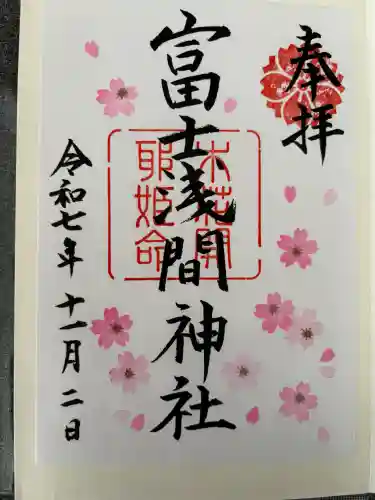 奉拝
富士浅間神社
木花開
耶姫命
令和七年十一月二日